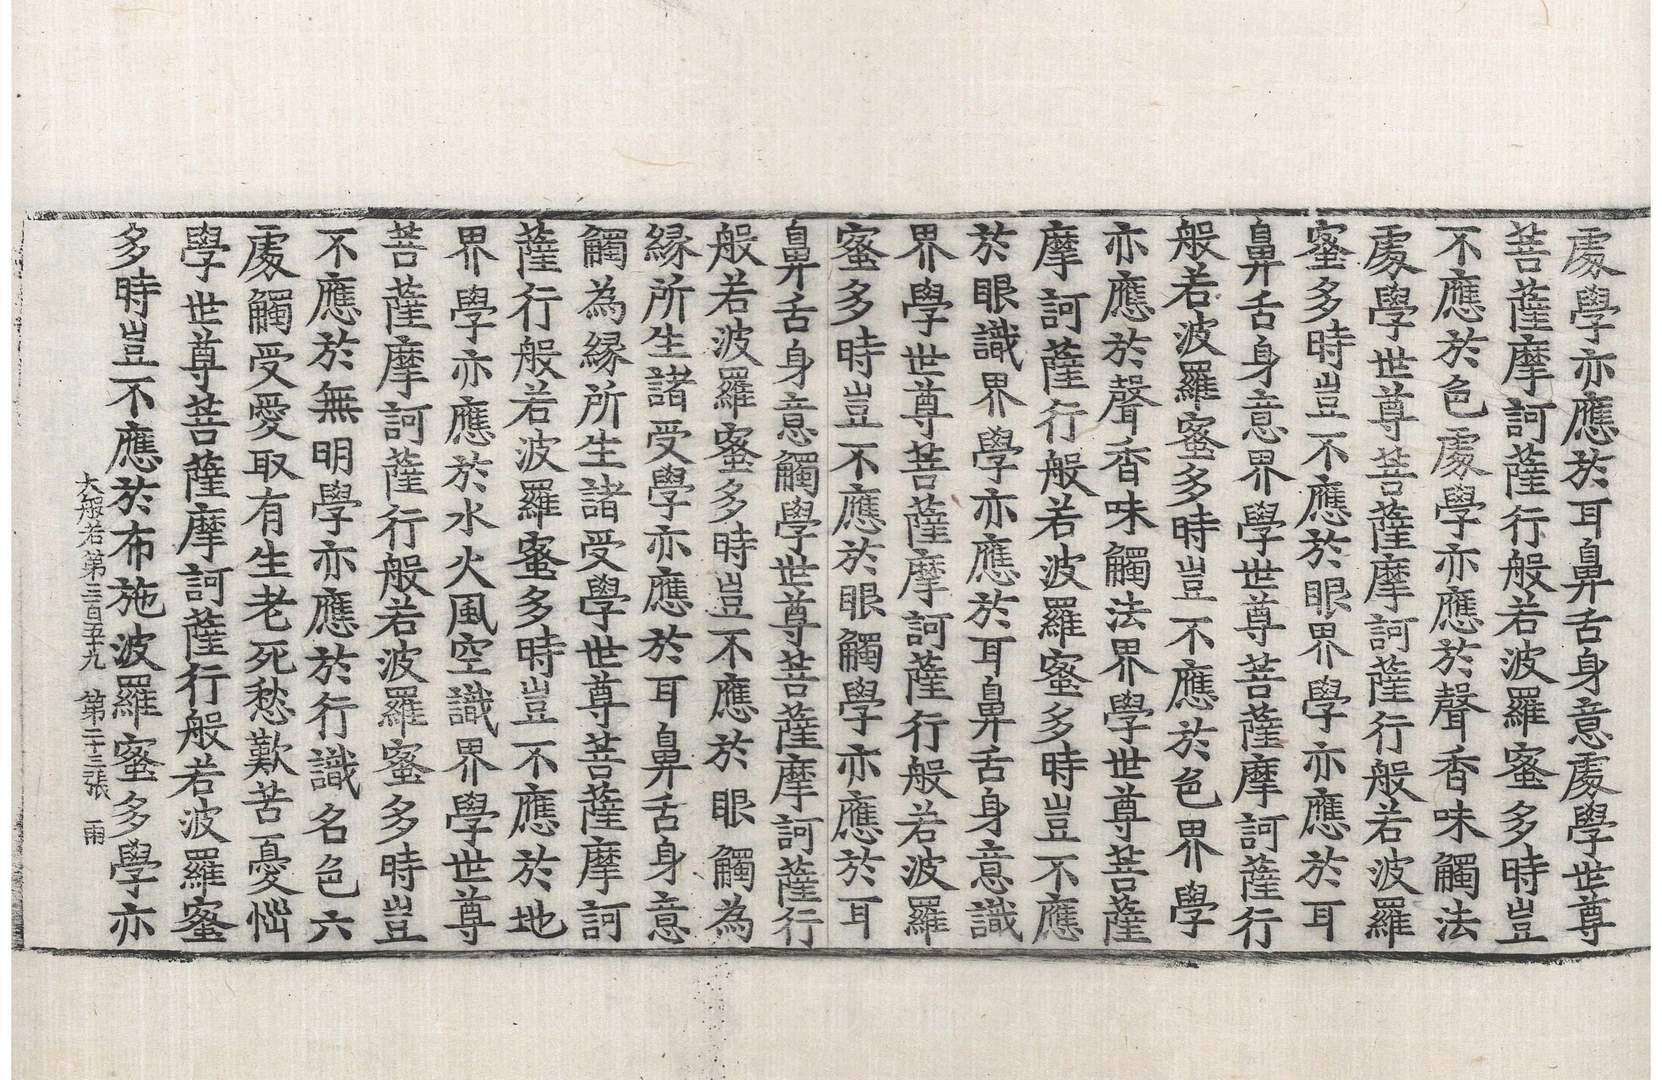 處學亦應於耳鼻舌身意處學世尊
菩薩摩訶薩行般若波羅蜜多時豈
不應於色處學亦應於聲香味觸法
處學世尊菩薩摩訶薩行般若波羅
蜜多時豈不應於眼界學亦應於耳
鼻舌身意界學世尊菩薩摩訶薩行
般若波羅蜜多時豈不應於色界學
亦應於聲香味觸法界學世尊菩薩
摩訶薩行般若波羅蜜多時豈不應
於眼識界學亦應於耳鼻舌身意識
界學世尊菩薩摩訶薩行般若波羅
蜜多時豈不應於眼觸學亦應於耳
鼻舌身意觸學世尊菩薩摩訶薩行
般若波羅蜜多時豈不應於眼觸為
緣所生諸受學亦應於耳鼻舌身意
觸為緣所生諸受學世尊菩薩摩訶
薩行般若波羅蜜多時豈不應於地
界學亦應於水火風空識界學世尊
菩薩摩訶薩行般若波羅蜜多時豈
不應於無明學亦應於行識名色六
處觸受愛取有生老死愁歎苦憂惱
學世尊菩薩摩訶薩行般若波羅蜜
多時豈不應於布施波羅蜜多學亦
大般若第三百五十九　第二十三張　雨